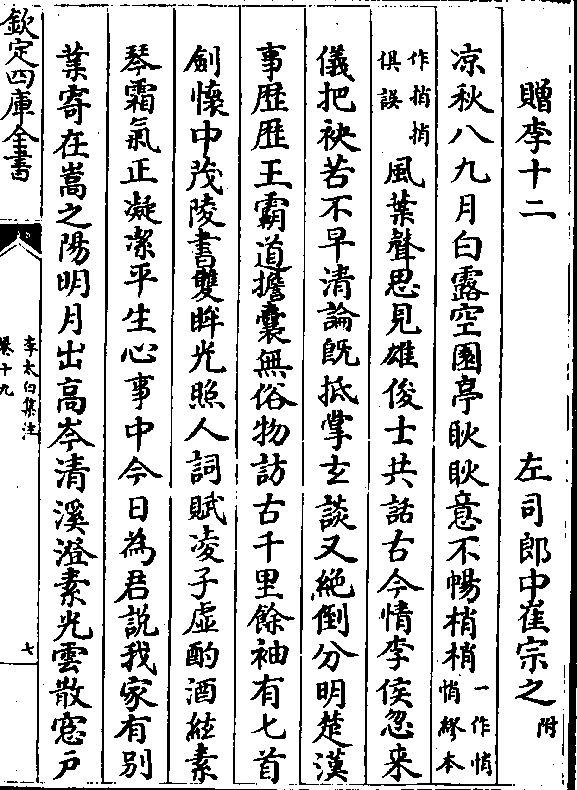 贈李十二 左司郎中崔宗之附
凉秋八九月白露空園亭耿耿意不暢梢梢一作悄悄繆本
作捎捎俱誤風葉聲思見雄俊士共話古今情李侯忽來
儀把袂苦不早清論既抵掌玄談又絶倒分明楚漢
事歴歴王霸道擔囊無俗物訪古千里餘袖有匕首
劍懷中茂陵書雙眸光照人詞賦凌子虚酌酒絃素
琴霜氣正凝潔平生心事中今日為君説我家有别
業寄在嵩之陽明月出高岑清溪澄素光雲散窓户
欽定四庫全書
李太白集注
卷十九
七